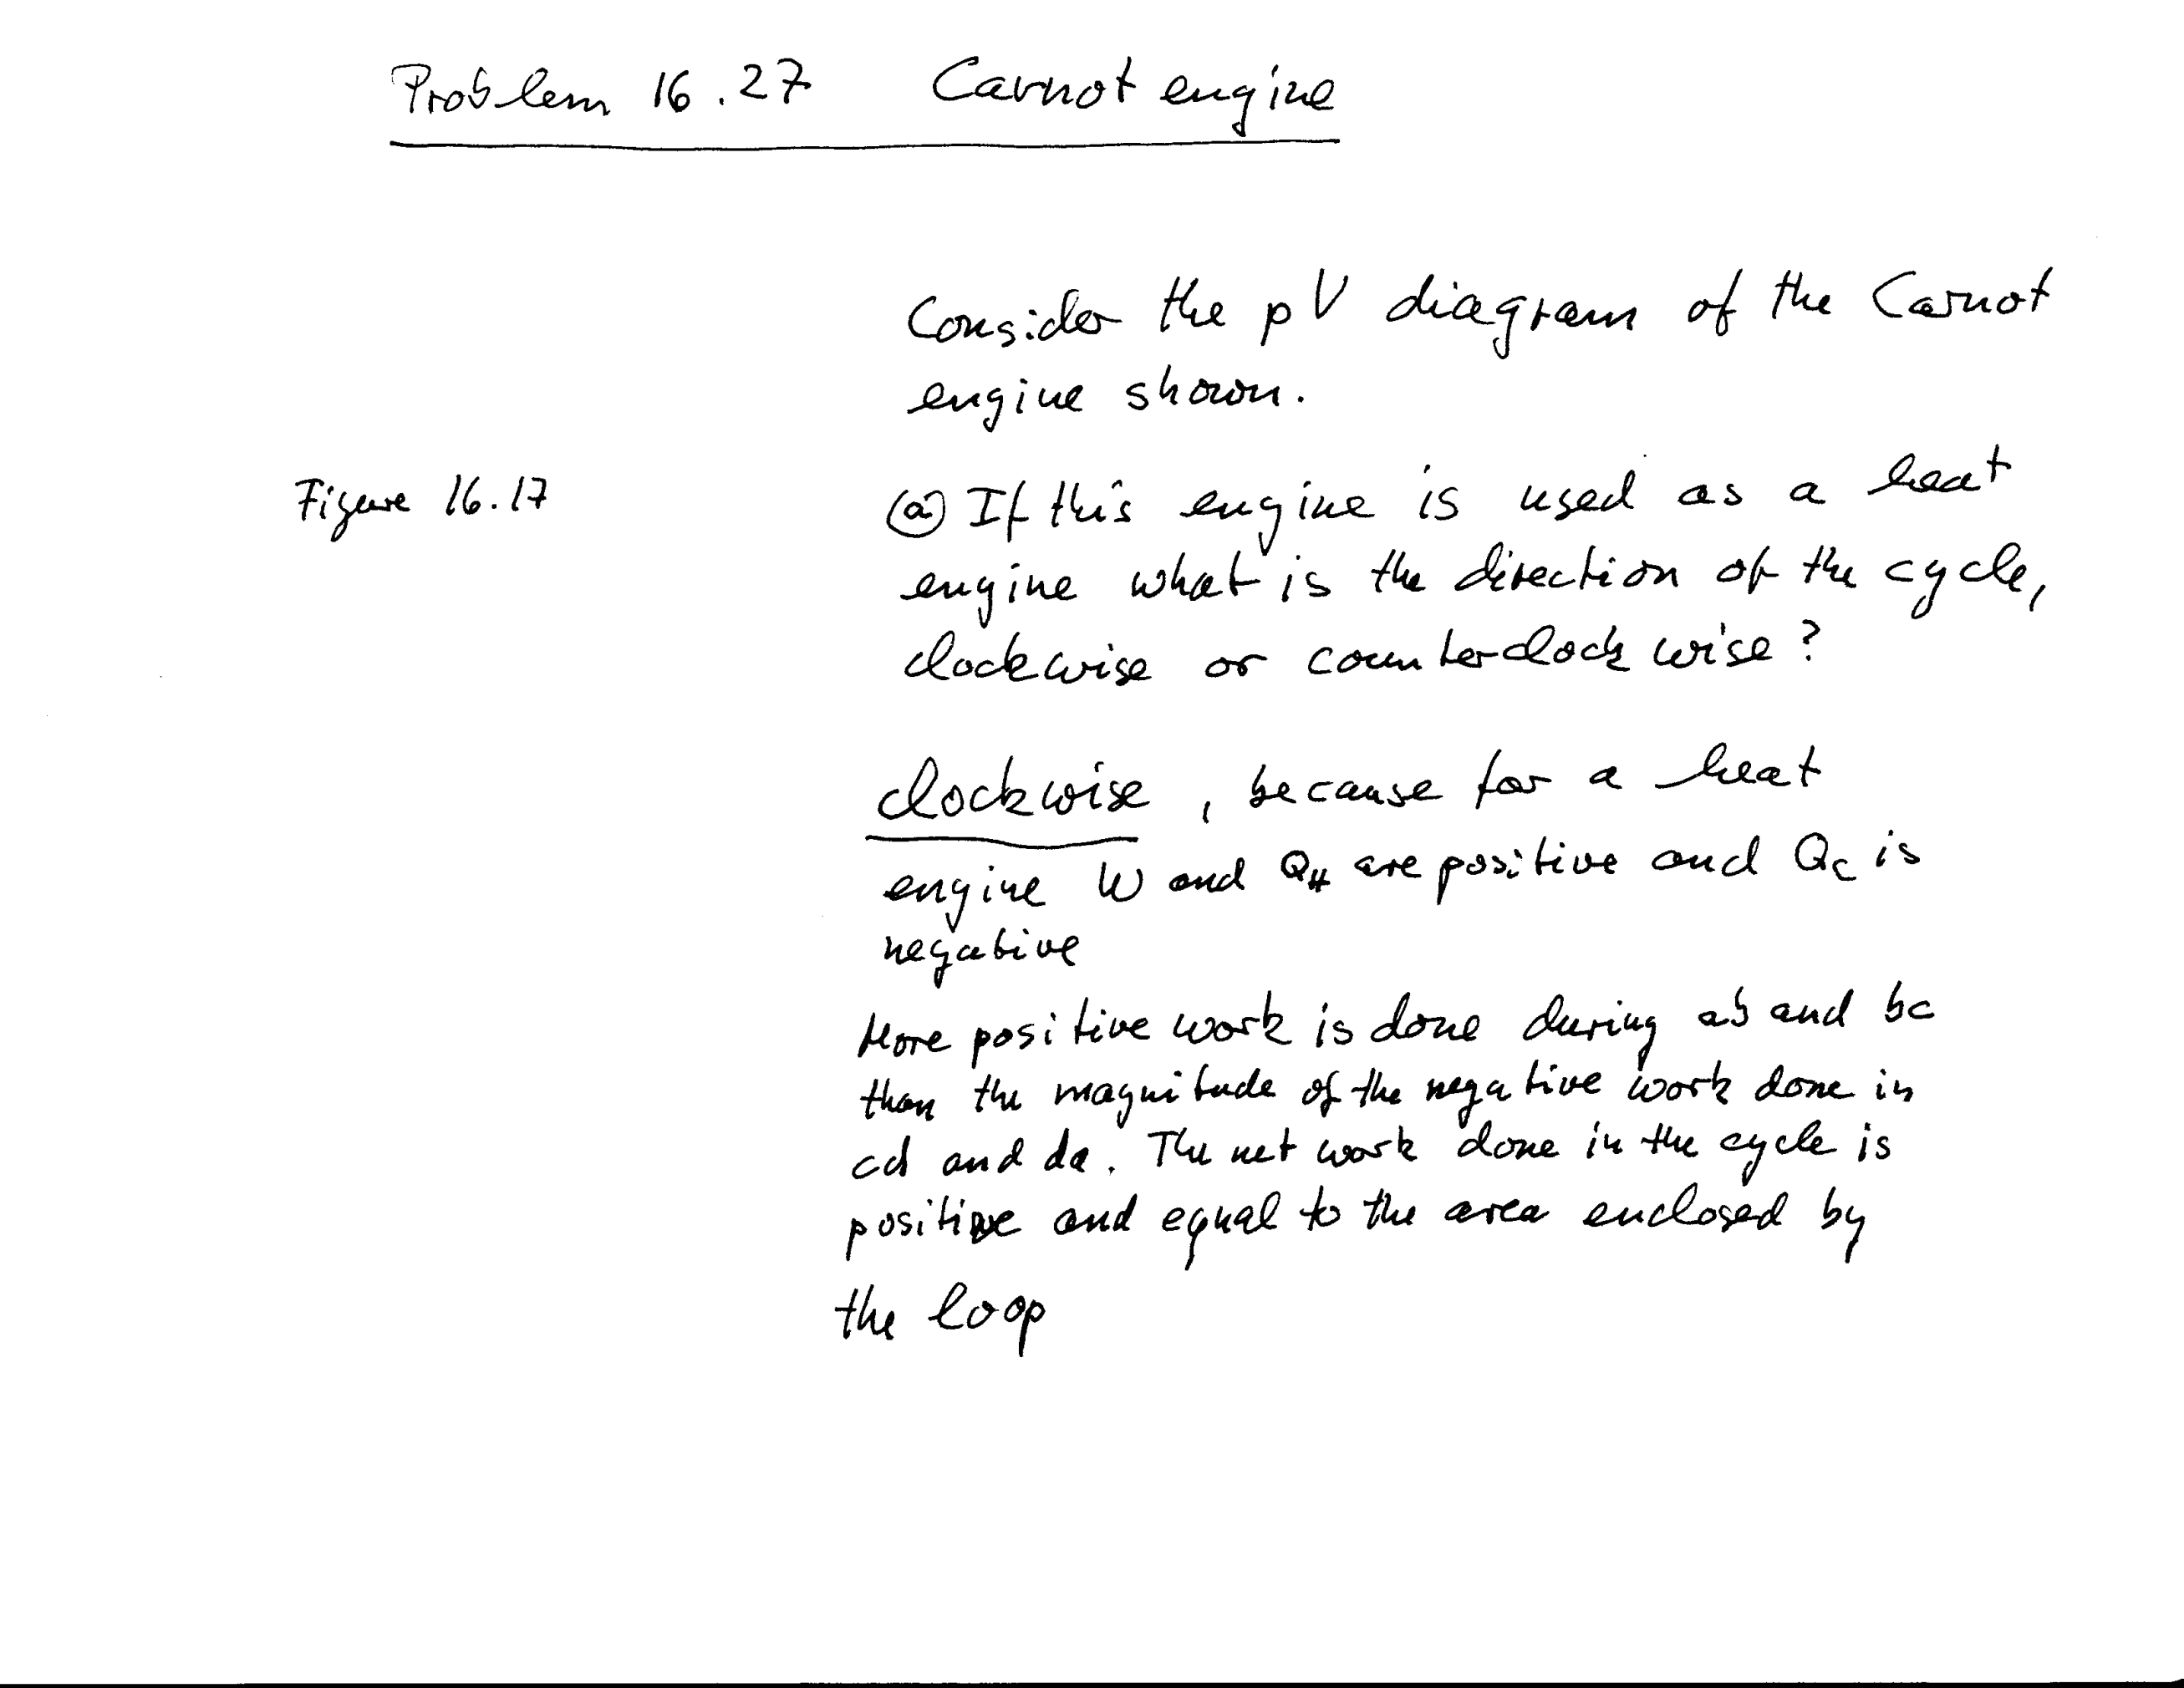 Problem 16.27 Carnot engine
Consider the pV diagram of the Carnot
engine shown.
Figure 16.17
(a) If this engine is used as a heat
engine what is the direction of the cycle,
clockwise or counterclockwise?
clockwise, because for a heat
engine W and QH are positive and Qc is
negative
More positive work is done during ab and bc
than the magnitude of the negative work done in
cd and da. The net work done in the cycle is
positive and equal to the area enclosed by
the loop